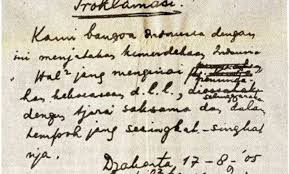 Proklamasi.
Kami bangsa Indonesia dengan
ini menjatakan kemerdekaan Indonesia
Hal² jang mengenai
kekoeasaan d.l.l.,
dengan tjara saksama dan dalam
tempoh jang sesingkat-singkat
nja.
Djakarta, 17 - 8 - '05